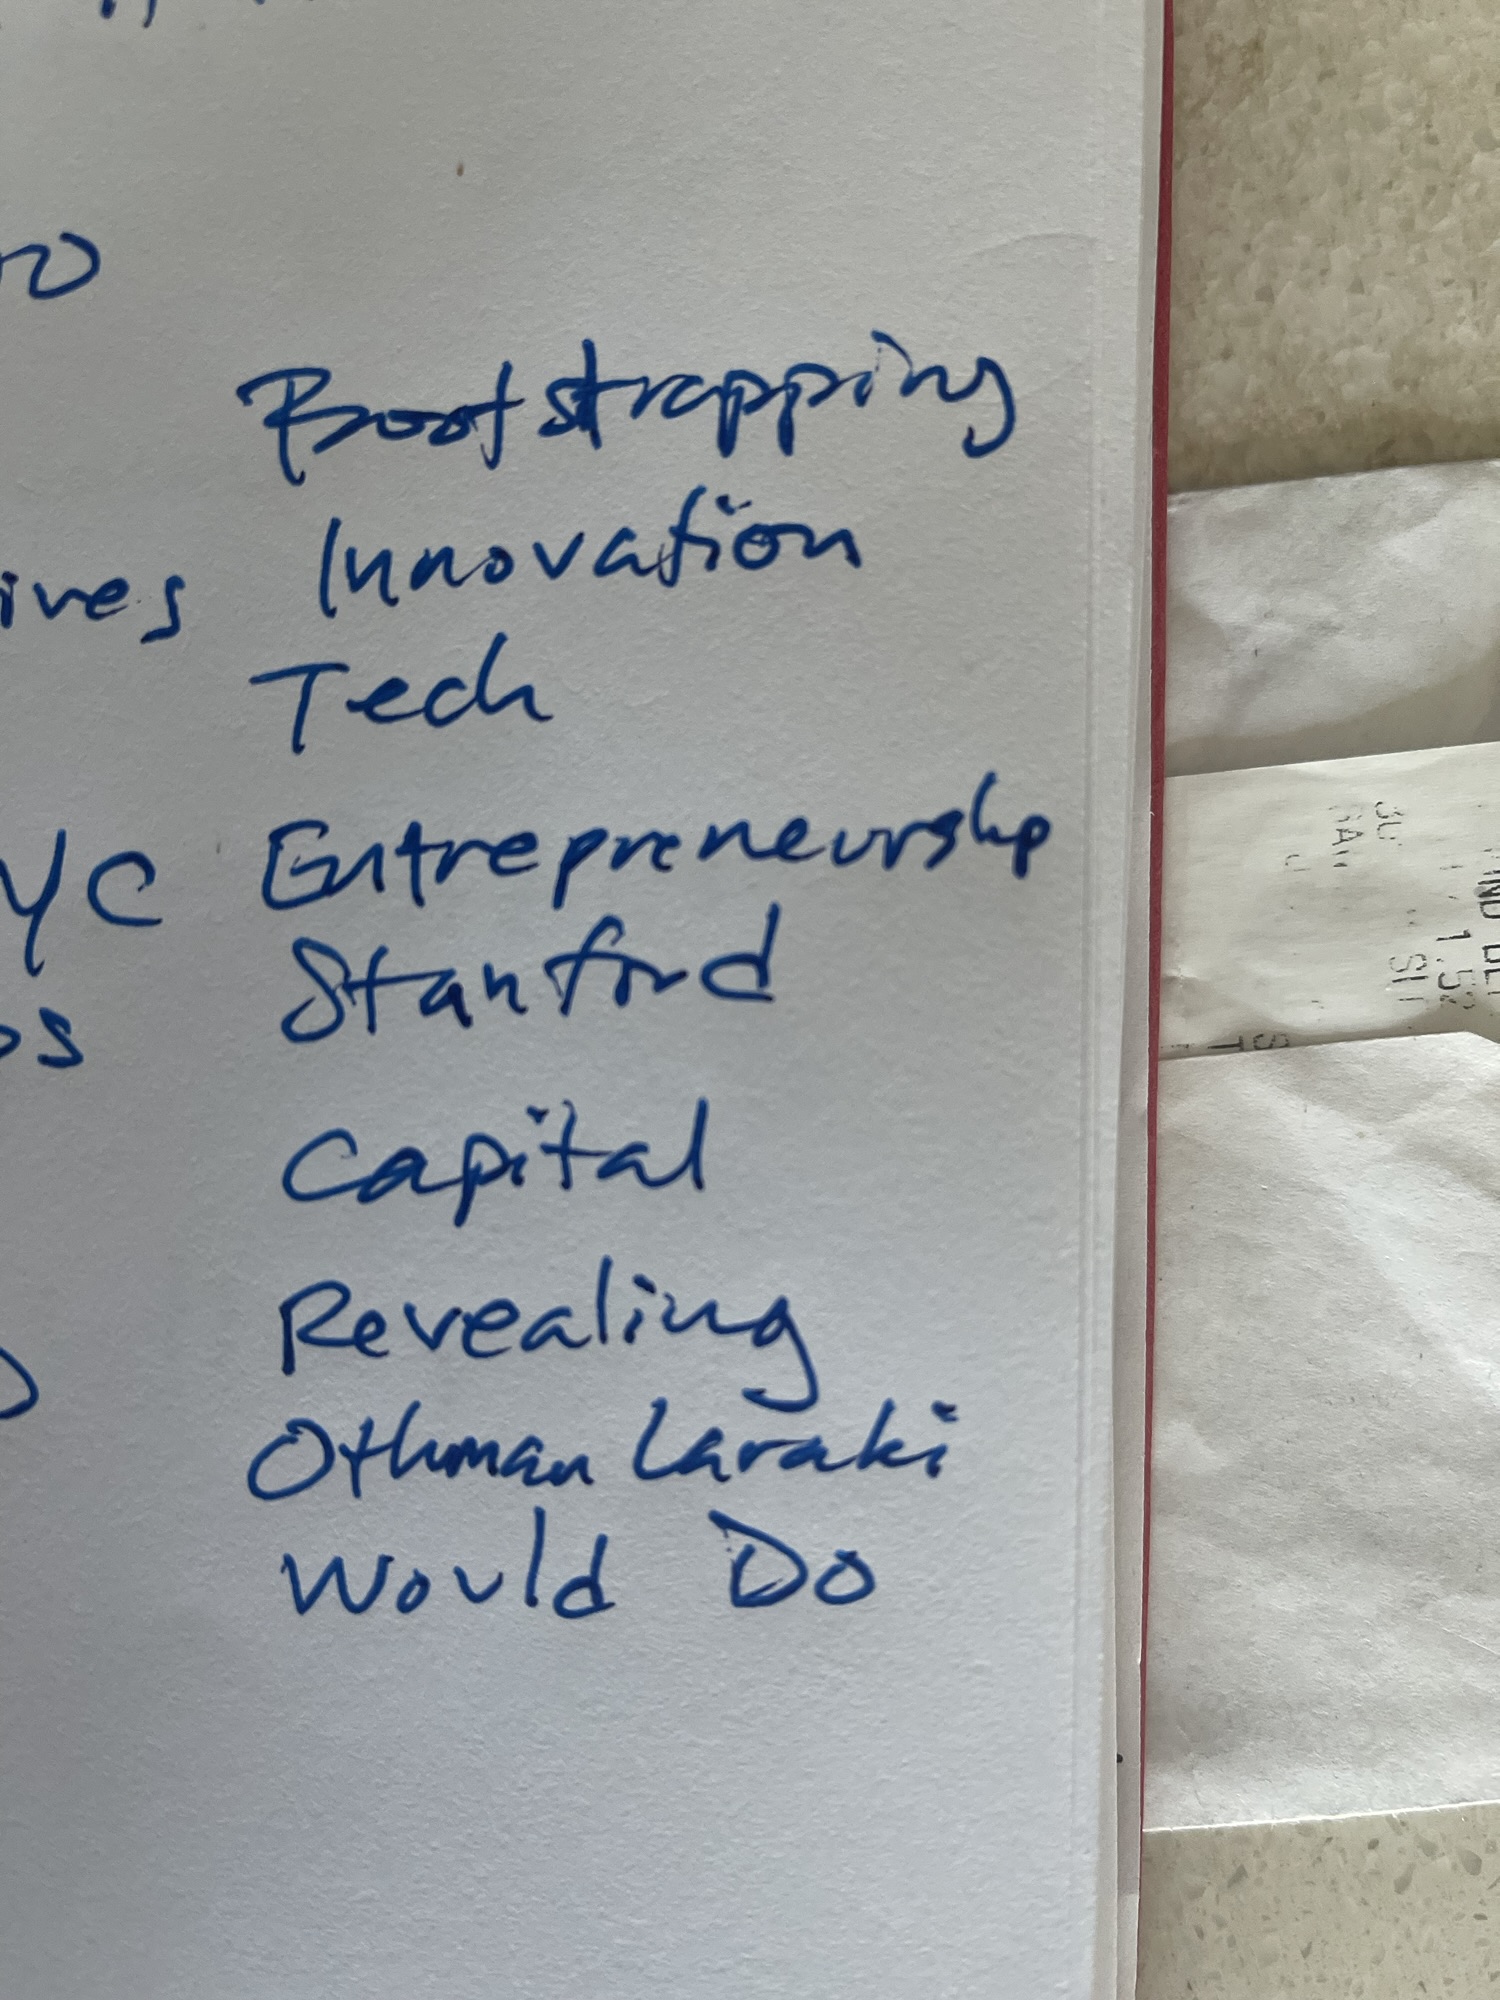 Bootstrapping
ives Innovation
Tech
YC Entrepreneurship
Stanford
os
Capital
Revealing
Othman Laraki
Would Do